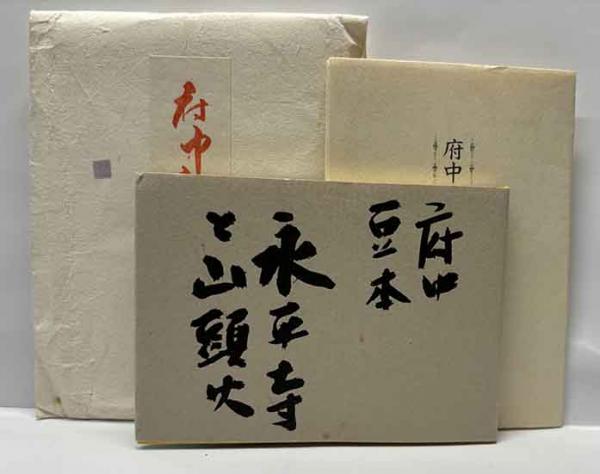 府中
府中
府中
豆本
永平寺
と山頭火